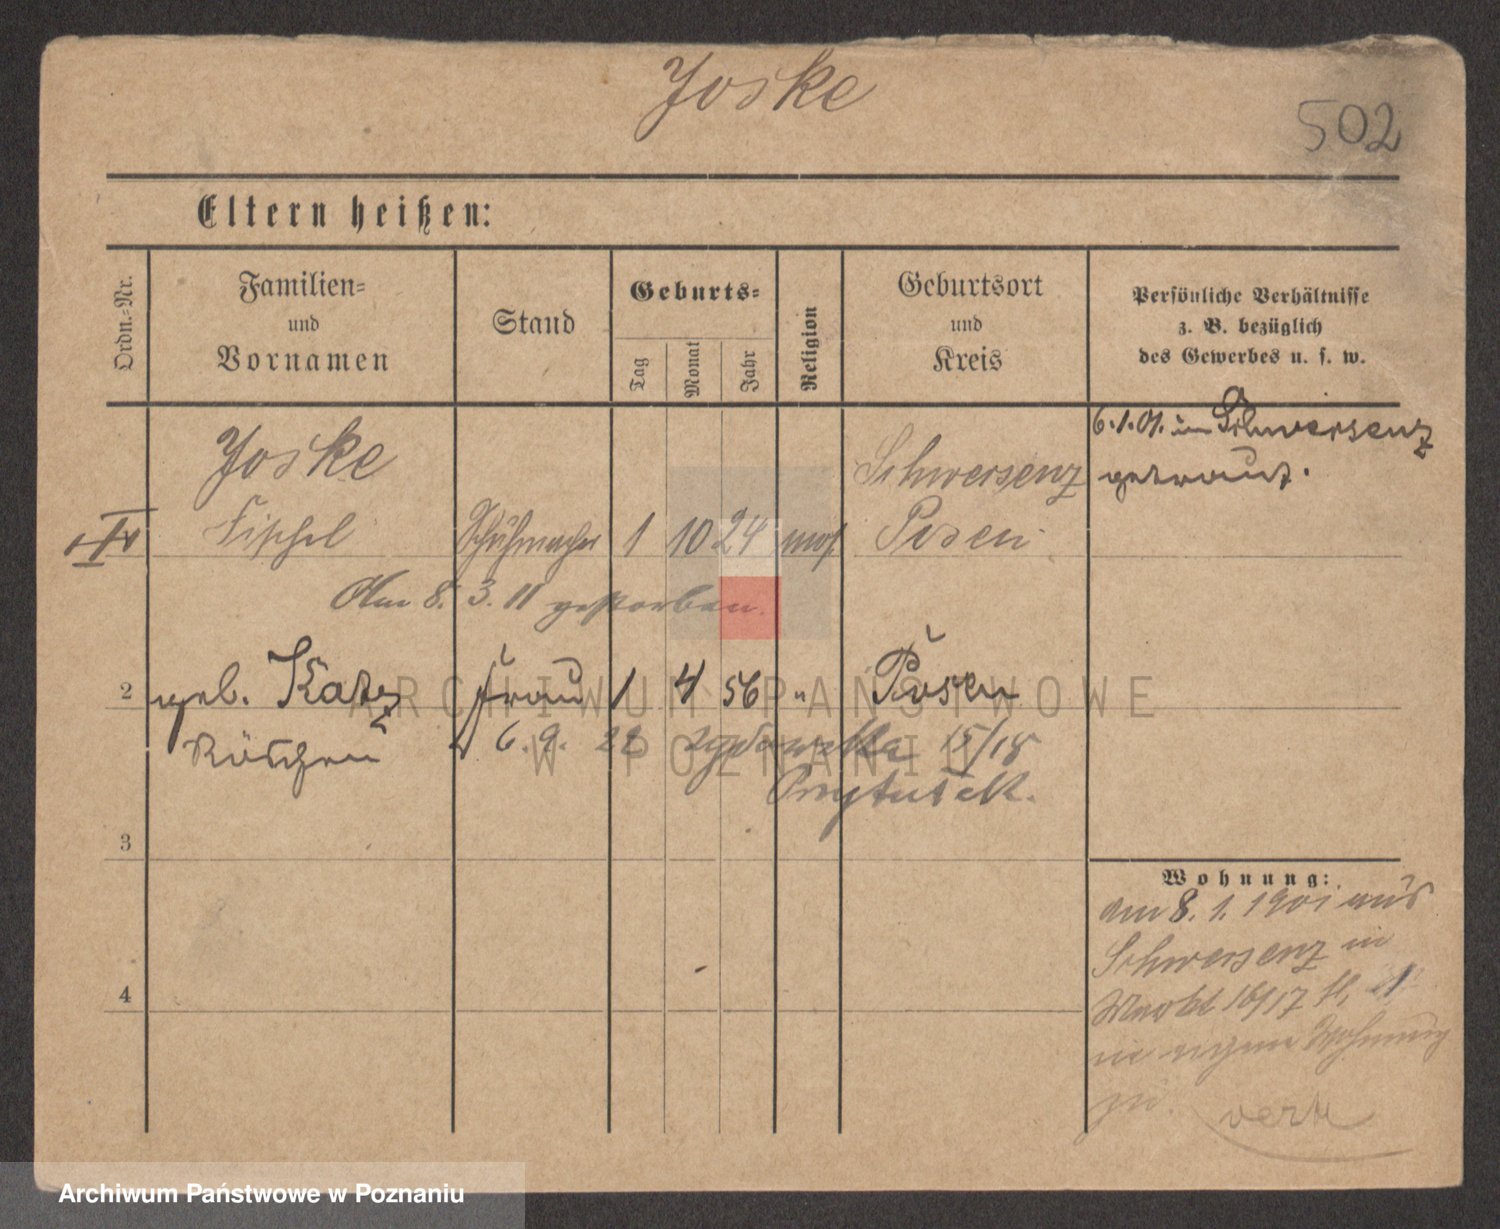 Joske
502
Eltern heißen:
Ordn.-Nr.
Familien-
und
Vornamen
Stand
Geburts-
Tag
Monat
Jahr
Religion
Geburtsort
und
Kreis
Persönliche Verhältnisse
z. B. bezüglich
des Gewerbes u. s. w.
Joske
Fischel
Schuhmacher
1
10
24
mos.
Schwersenz
Posen
6.1.01. in Schwersenz
getraut.
Am 8. 3. 11 gestorben.
2
geb. Katz
Röschen
Frau
1
4
56
"
Posen
6. 9. 22
15/18
Przytułek.
3
4
Wohnung:
am 8. 1. 1901 aus
Schwersenz in
Markt 16/17
in eigene Wohnung
zu.
ARCHIWUM PAŃSTWOWE
W POZNANIU
Archiwum Państwowe w Poznaniu